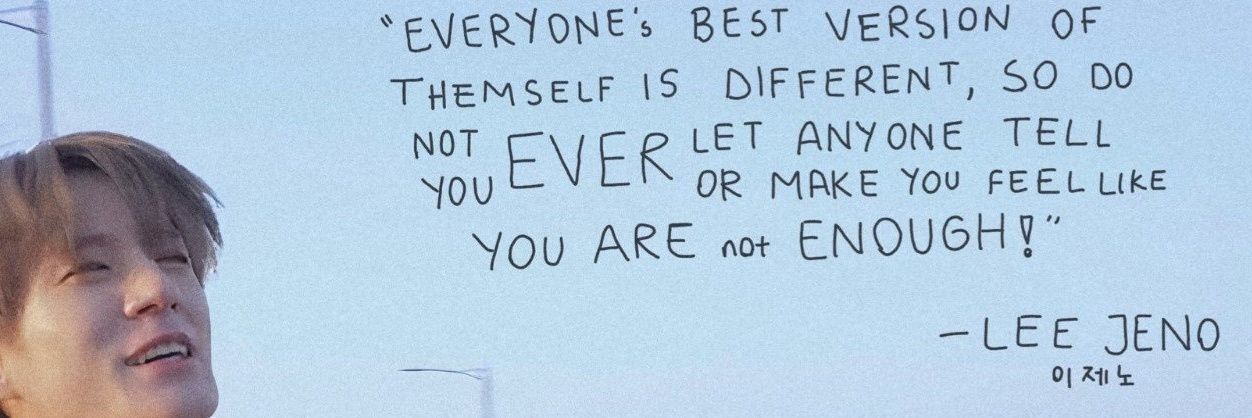 "EVERYONE's BEST VERSION OF
THEMSELF IS DIFFERENT, SO DO
NOT EVER LET ANYONE TELL
YOU OR MAKE YOU FEEL LIKE
YOU ARE not ENOUGH!"
— LEE JENO
이제노